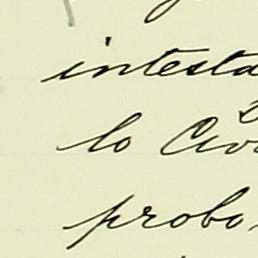 intesta
lo Civ
probo